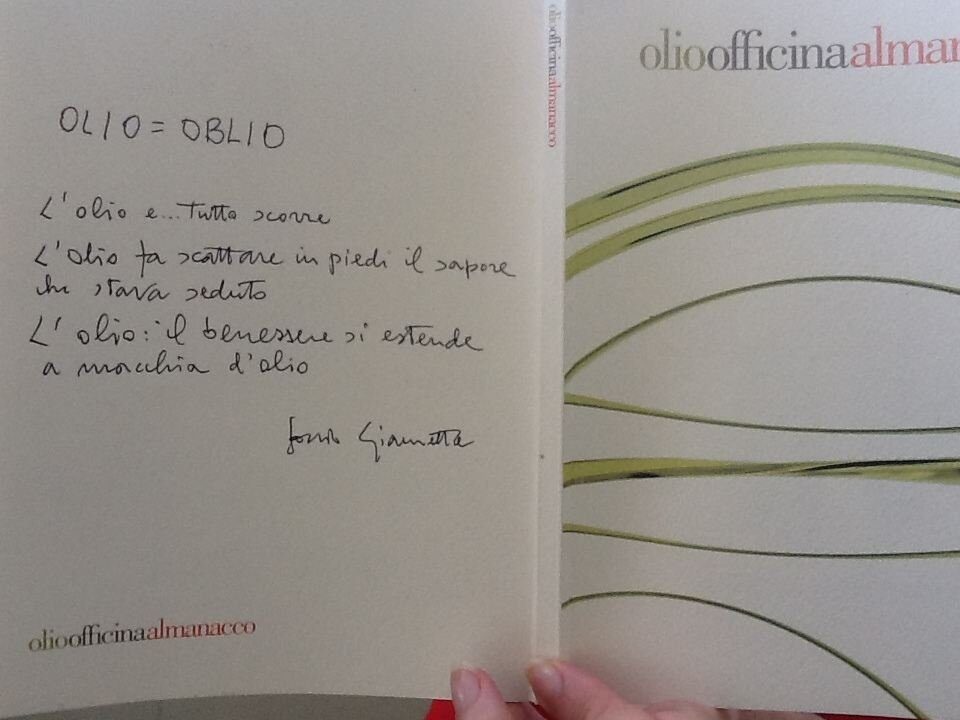 OLIO = OBLIO
L'olio e... tutto scorre
L'olio fa scattare in piedi il sapore
che stava seduto
L'olio: il benessere si estende
a macchia d'olio
Giametta
olioofficinaalmanacco
olioofficinaalmanacco
olioofficinaalmana